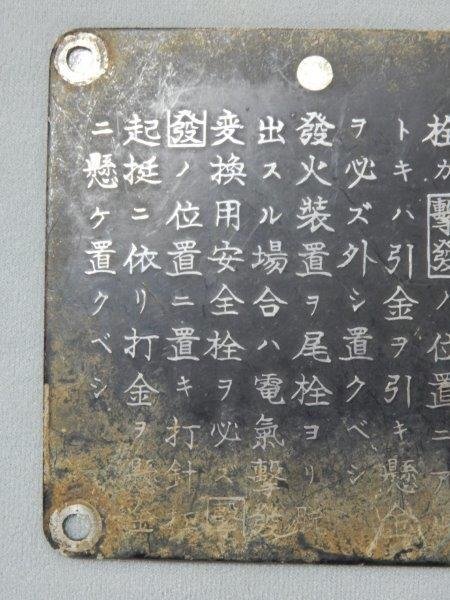 栓ガ撃發ノ位置ニアル
トキハ引金ヲ引キ懸金
ヲ必ズ外シ置クベシ
發火装置ヲ尾栓ヨリ脱
出スル場合ハ電氣撃發
変換用安全栓ヲ必ズ撃
發ノ位置ニ置キ打針打
起挺ニ依リ打金ヲ懸金
ニ懸ケ置クベシ